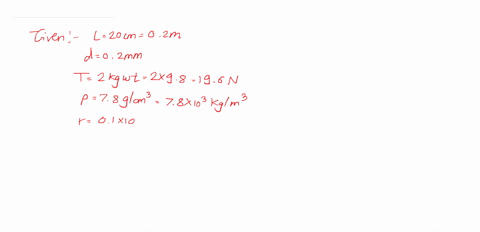 Given:- L=20cm=0.2m
d=0.2mm
T=2kgwt=2×9.8=19.6N
ρ=7.8g/cm³=7.8×10³kg/m³
r=0.1×10